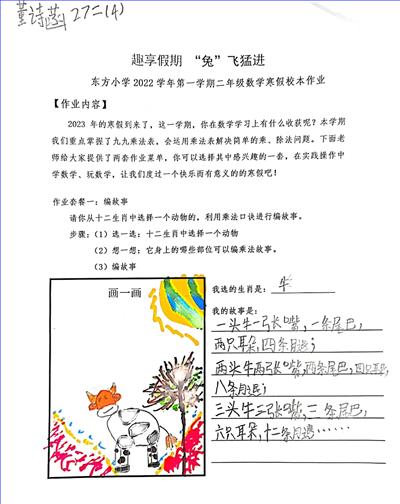 董诗涵 27二(4)
趣享假期 “兔”飞猛进
东方小学2022学年第一学期二年级数学寒假校本作业
【作业内容】
2023 年的寒假到来了，这一学期，你在数学学习上有什么收获呢？本学期
我们重点掌握了九九乘法表，会运用乘法表解决简单的乘、除法问题。下面老
师给大家提供了两套作业菜单，你可以选择其中感兴趣的一套，在实践操作中
学数学、玩数学，让我们度过一个快乐而有意义的的寒假吧！
作业套餐一：编故事
请你从十二生肖中选择一个动物的，利用乘法口诀进行编故事。
步骤：（1）选一选：十二生肖中选择一个动物
（2）想一想：它身上的哪些部位可以编乘法故事。
（3）编故事
画一画
我选的生肖是：牛
我的故事是：
一头牛一张嘴，一条尾巴，
两只耳朵，四条腿；
两头牛两张嘴，两条尾巴，四只耳朵，
八条腿；
三头牛三张嘴，三条尾巴，
六只耳朵，十二条腿……